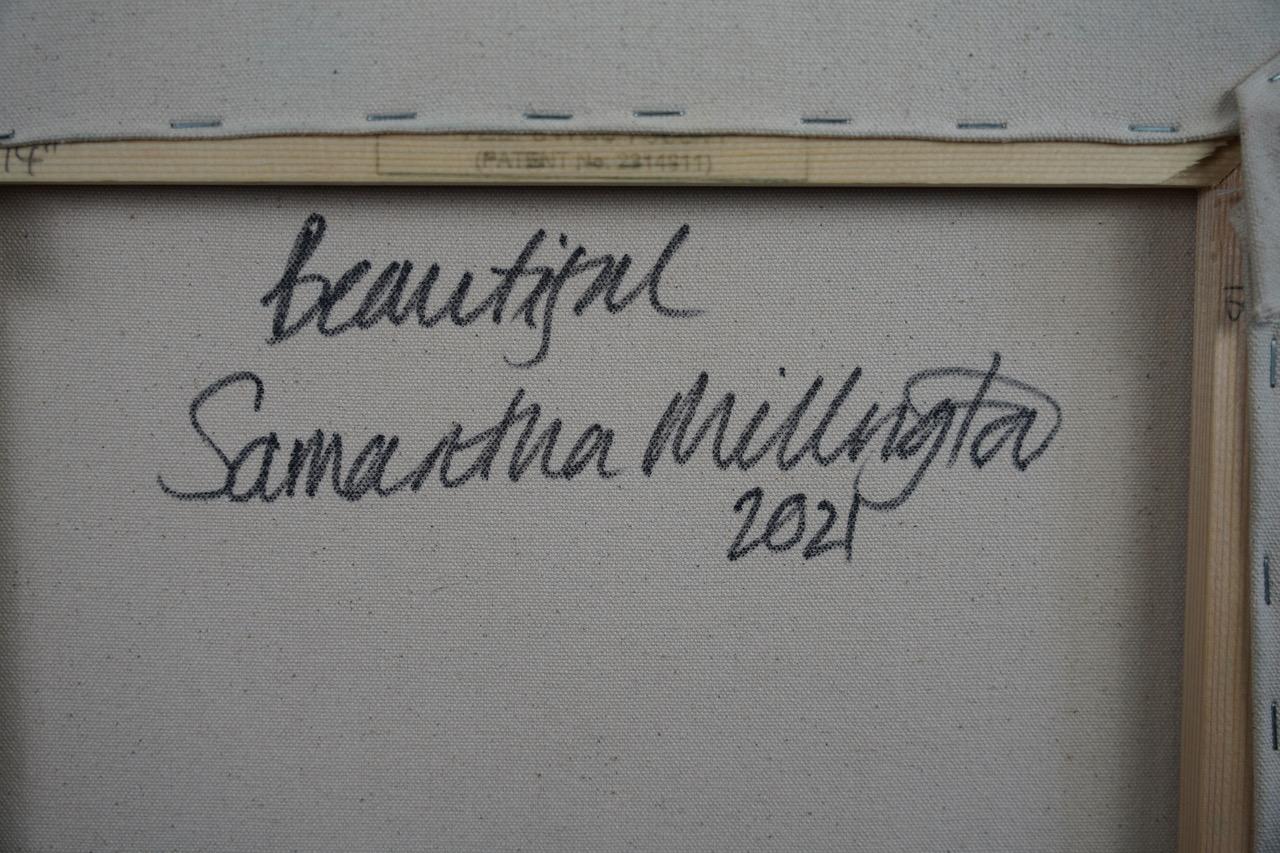 14"
(PATENT No. 2314911)
Beautiful
Samantha Millington
2021